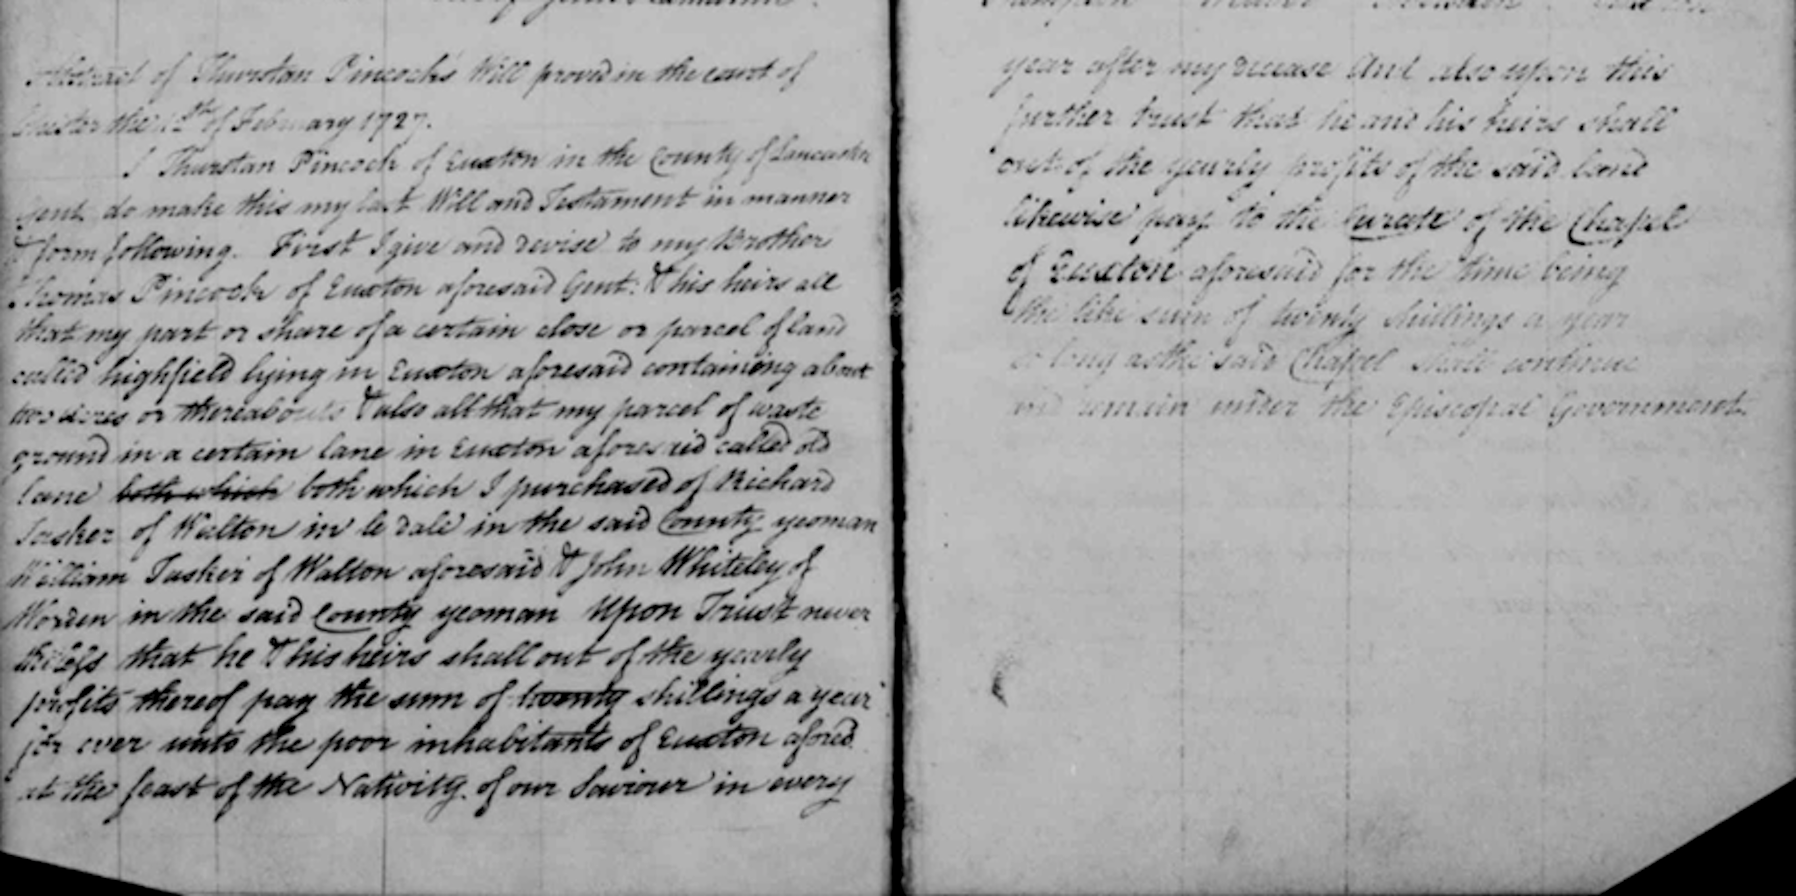 Abstract of Thurstan Pincock's Will proved in the court of
Chester the 12th of February 1727.
I Thurstan Pincock of Euxton in the County of Lancaster
Gent. do make this my last Will and Testament in manner
& form following. First I give and devise to my Brother
Thomas Pincock of Euxton aforesaid Gent. & his heirs all
that my part or share of a certain close or parcel of land
called highfield lying in Euxton aforesaid containing about
two acres or thereabouts & also all that my parcel of waste
ground in a certain lane in Euxton aforesaid called old
lane both which both which I purchased of Richard
Tasker of Walton in le dale in the said County yeoman
William Tasker of Walton aforesaid & John Whiteley of
Worden in the said County yeoman Upon Trust never
theless that he & his heirs shall out of the yearly
profits thereof pay the sum of twenty shillings a year
for ever unto the poor inhabitants of Euxton afored.
at the feast of the Nativity of our Saviour in every
year after my decease And also upon this
further trust that he and his heirs shall
out of the yearly profits of the said land
likewise pay to the Curate of the Chapel
of Euxton aforesaid for the time being
the like sum of twenty shillings a year
so long as the said Chapel shall continue
and remain under the Episcopal Government.